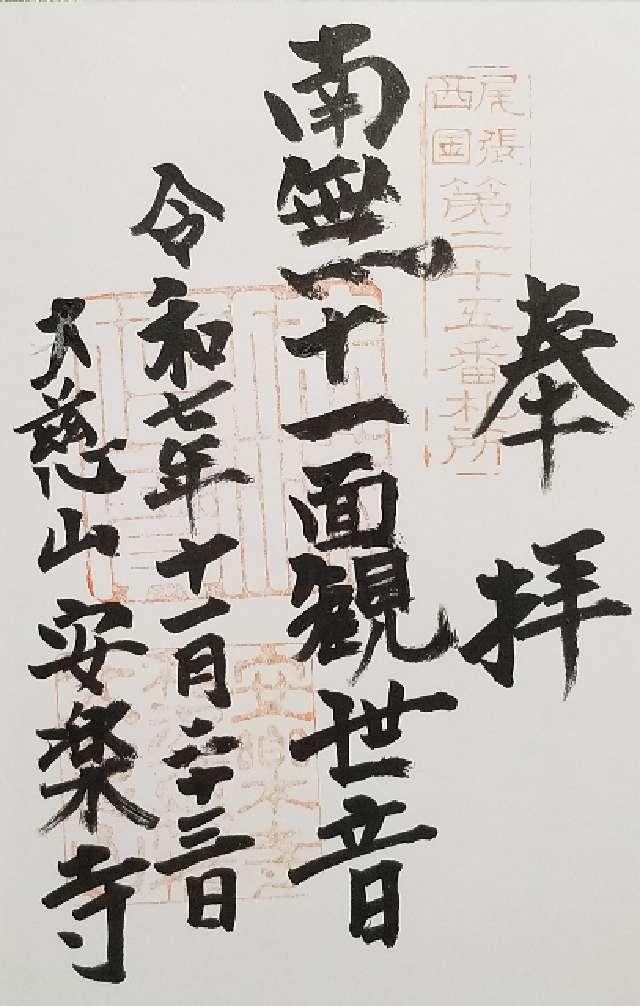 奉拝
尾張
西国
第二十五番札所
南無十一面観世音
令和七年十一月二十三日
大慈山安楽寺